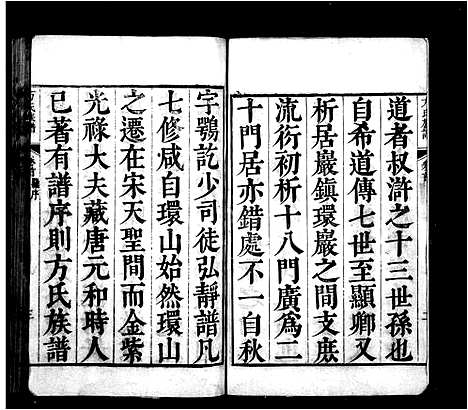 道者叔滸之十三世孫也
自希道傳七世至顯卿又
析居巖鎮環巖之間支庶
流衍初析十八門廣為二
十門居亦錯處不一自秋
字鶚訖少司徒弘靜譜凡
七修咸自環山始然環山
之遷在宋天聖間而金紫
光祿大夫藏唐元和時人
已著有譜序則方氏族譜